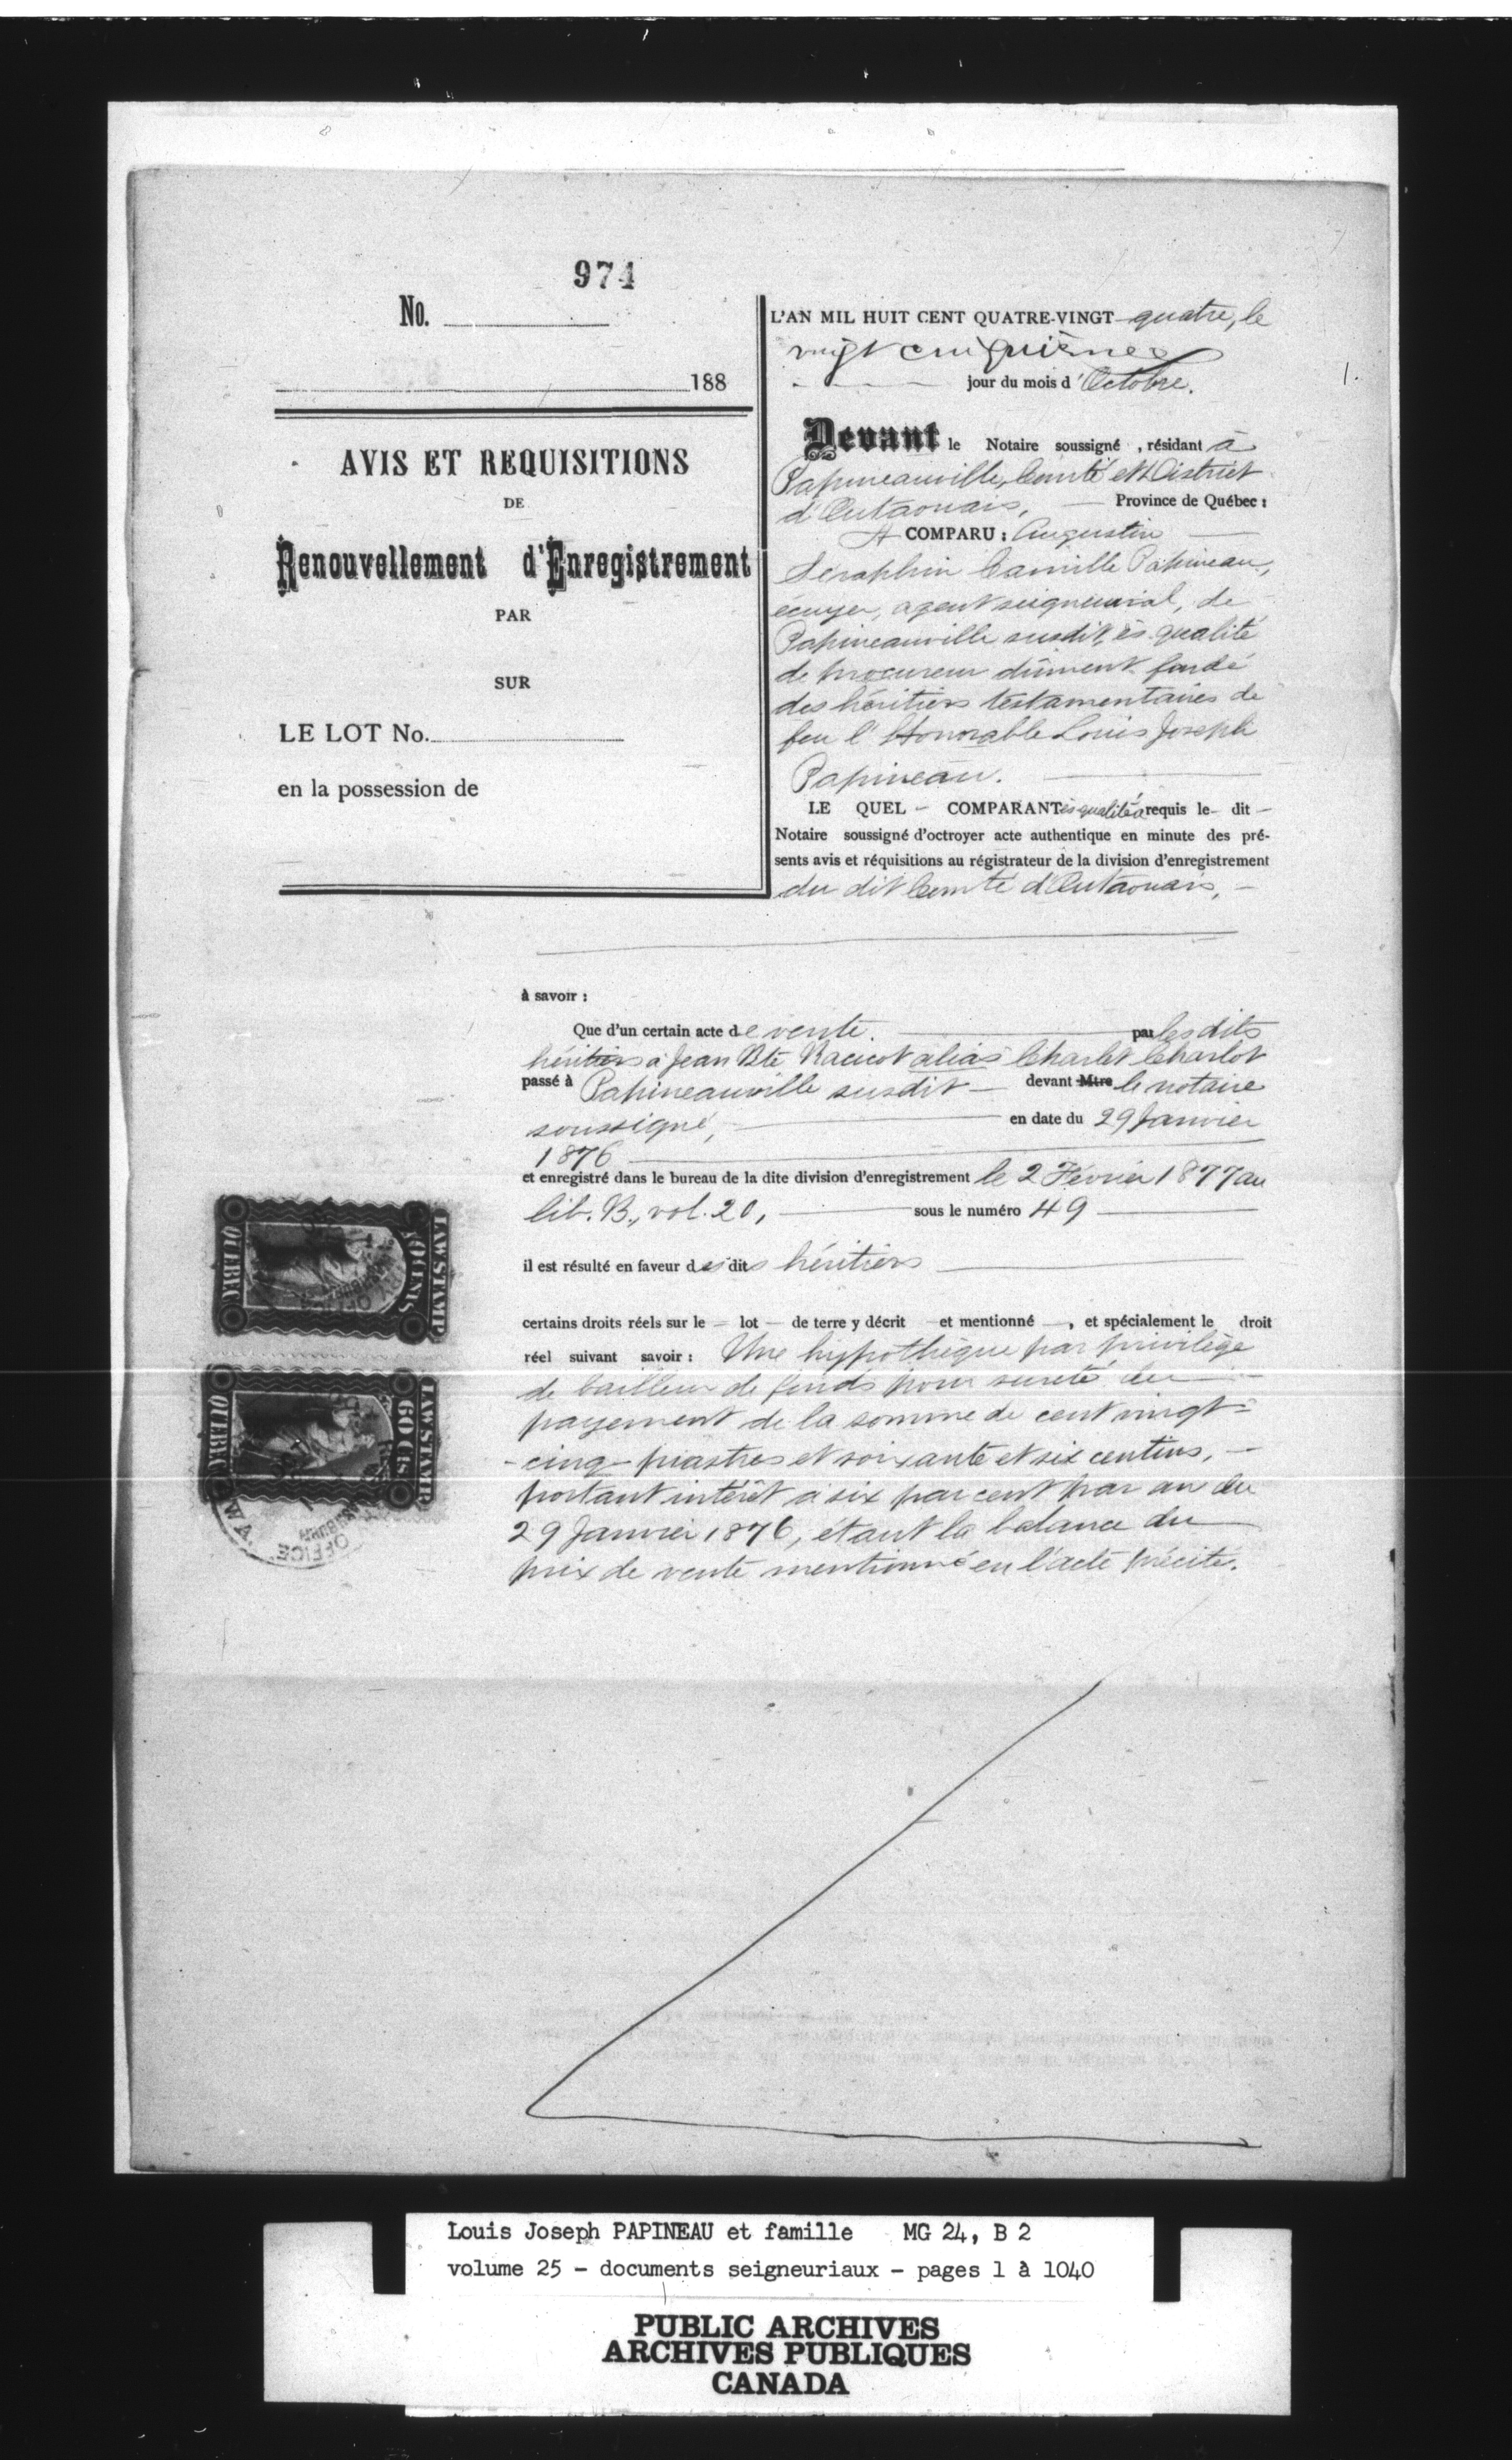 974
No.
188
AVIS ET REQUISITIONS
DE
Renouvellement d'Enregistrement
PAR
SUR
LE LOT No.
en la possession de
L'AN MIL HUIT CENT QUATRE-VINGT quatre, le
vingt cinquième
jour du mois d'Octobre.
Devant le Notaire soussigné, résidant à
Papineauville, Comté et District
d'Outaouais, Province de Québec :
A COMPARU : Augustin
Seraphin Camille Papineau,
écuyer, agent seigneurial, de
Papineauville susdit, ès qualité
de procureur dûment fondé
des héritiers testamentaires de
feu l'Honorable Louis Joseph
Papineau.
LE QUEL COMPARANT ès qualité a requis le dit
Notaire soussigné d'octroyer acte authentique en minute des pré-
sents avis et réquisitions au régistrateur de la division d'enregistrement
du dit Comté d'Outaouais,
à savoir :
Que d'un certain acte de vente. par les dits
héritiers à Jean Bte Racicot alias Charlot
passé à Papineauville susdit devant Mtre le notaire
soussigné, en date du 29 Janvier
1876
et enregistré dans le bureau de la dite division d'enregistrement le 2 Février 1877 au
lib. B., vol. 20, sous le numéro 49
il est résulté en faveur des dits héritiers
certains droits réels sur le lot de terre y décrit et mentionné , et spécialement le droit
réel suivant savoir : Une hypothèque par privilège
de bailleur de fonds pour sureté du
payement de la somme de cent vingt=
-cinq piastres et soixante et six centins,
portant intérêt à six par cent par an du
29 Janvier 1876, étant la balance du
prix de vente mentionné en l'acte précité.
LAW STAMP
QUEBEC
LAW STAMP
60 CTS
QUEBEC
OFFICE
1.
Louis Joseph PAPINEAU et famille MG 24, B 2
volume 25 - documents seigneuriaux - pages 1 à 1040
PUBLIC ARCHIVES
ARCHIVES PUBLIQUES
CANADA